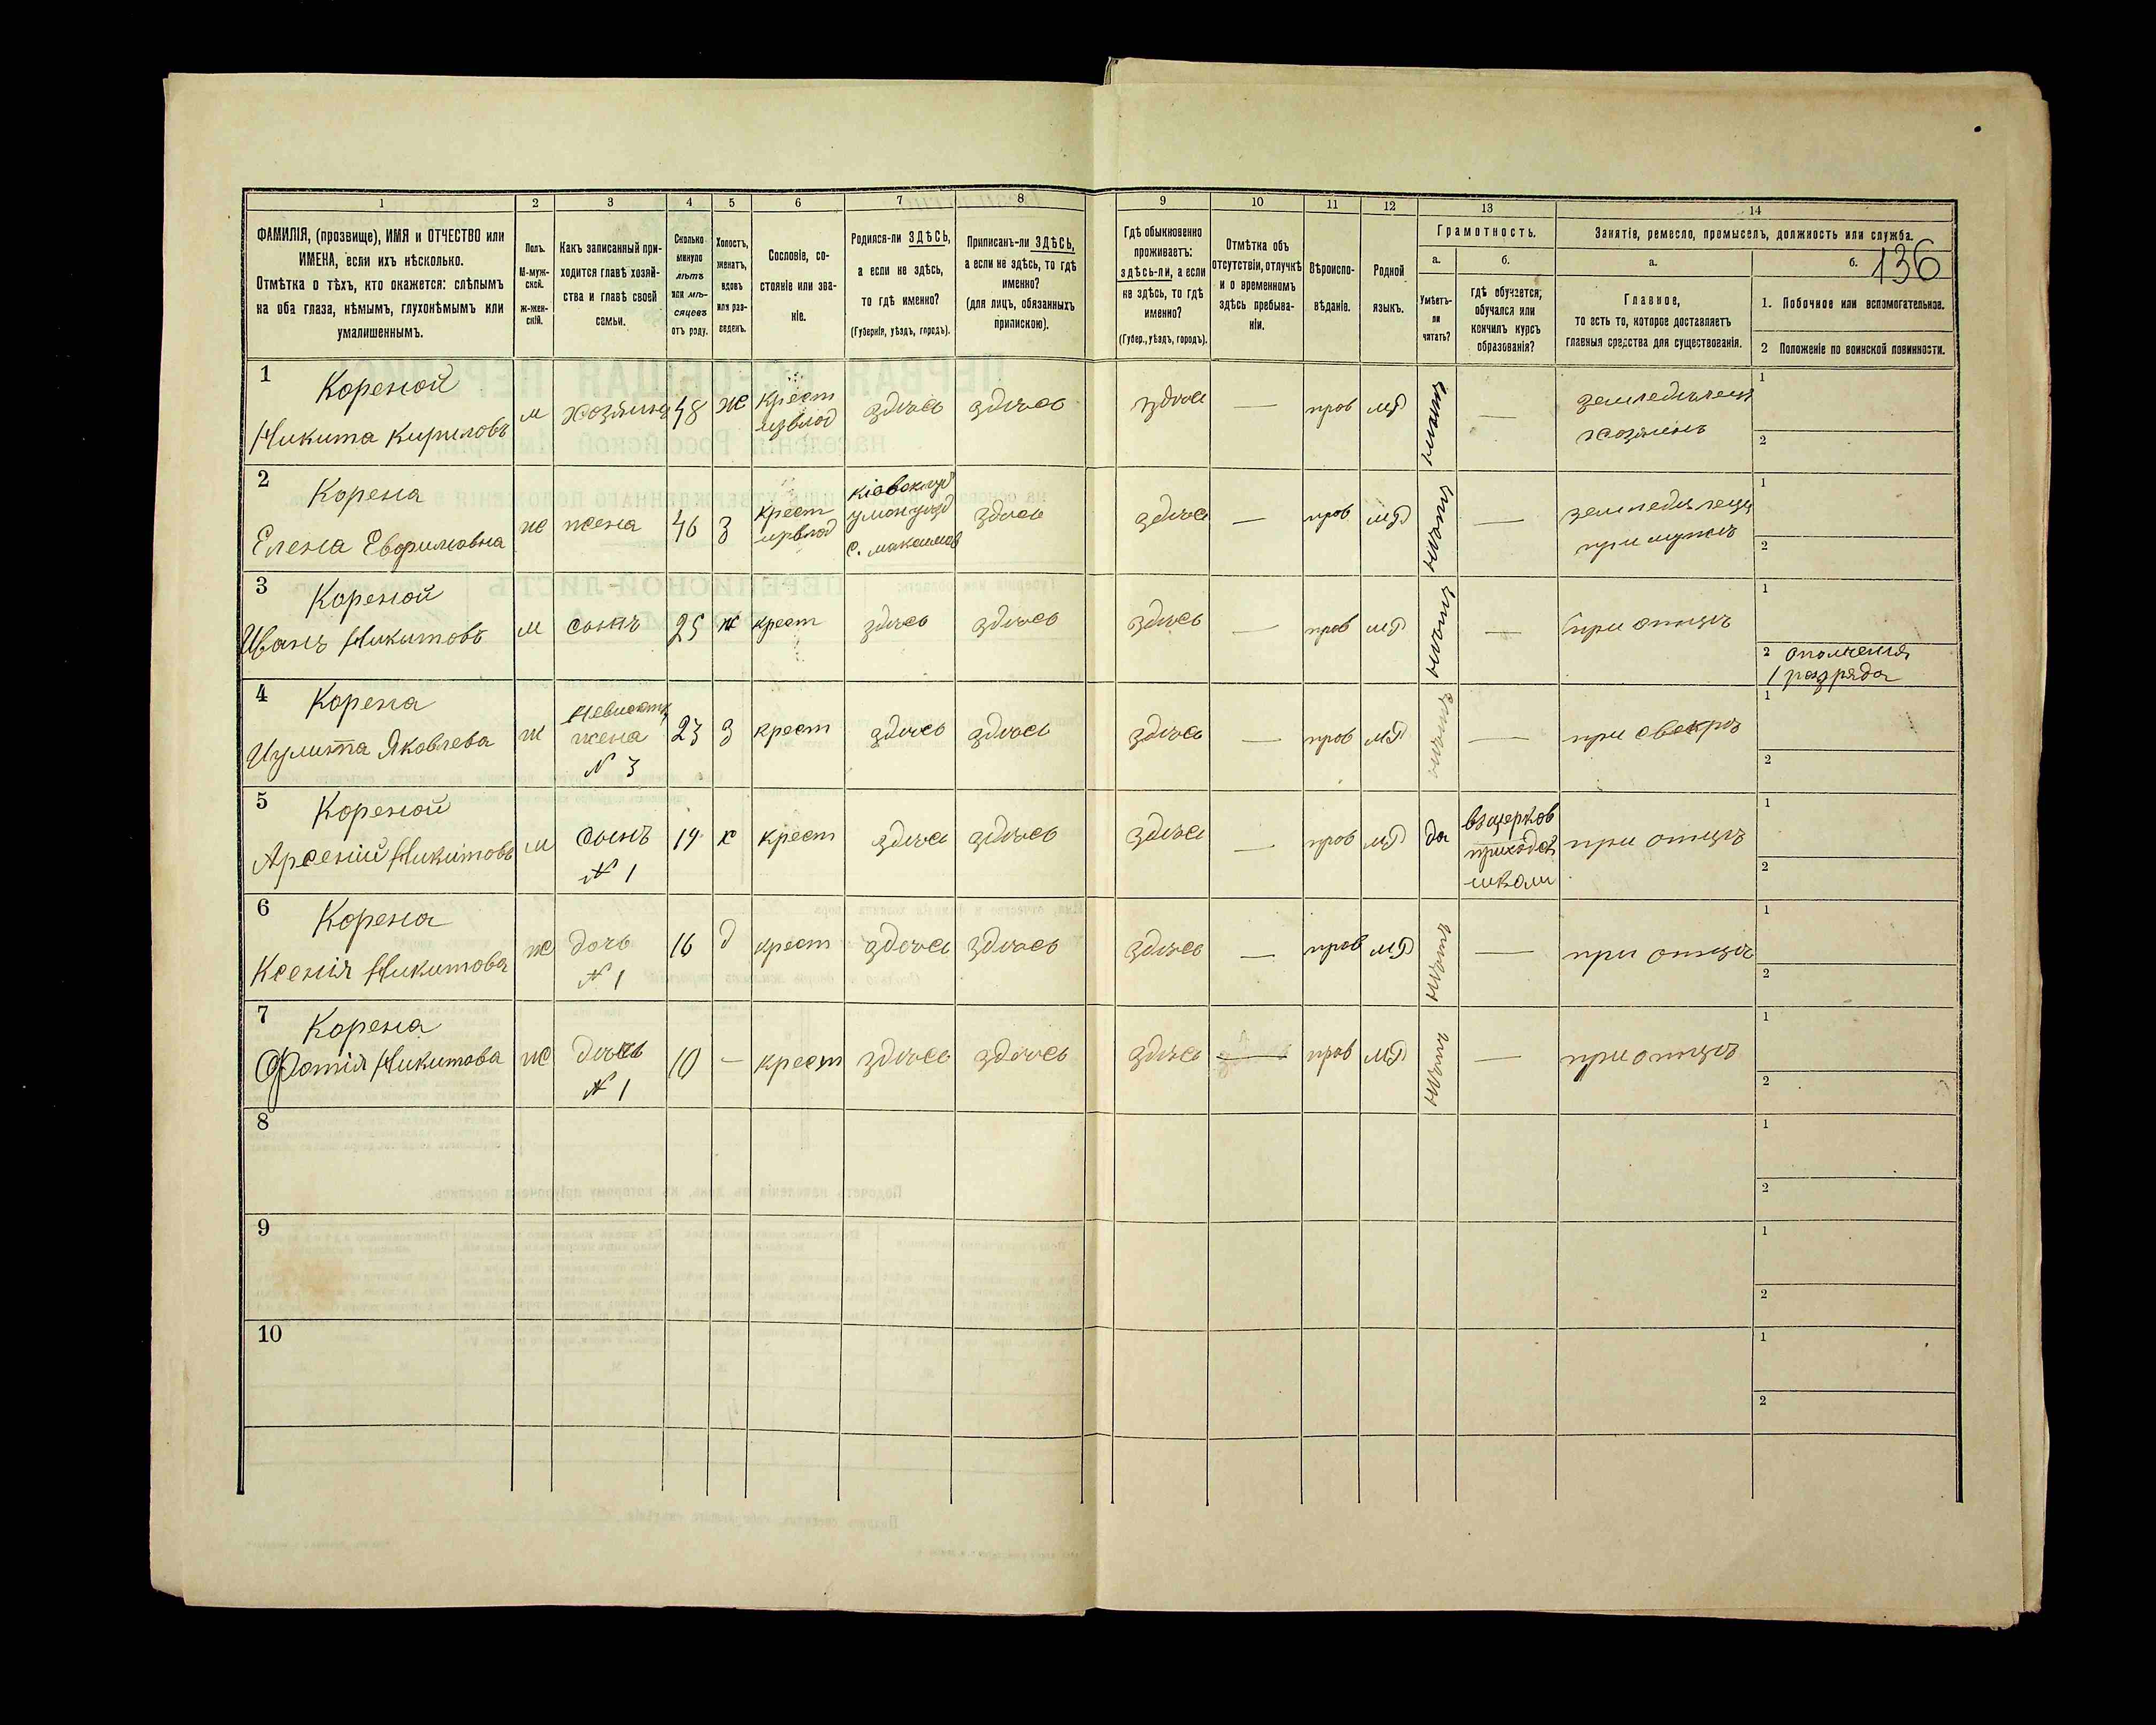 1 2 3 4 5 6 7 8 9 10 11 12 13 14
ФАМИЛІЯ, (прозвище), ИМЯ и ОТЧЕСТВО или
ИМЕНА, если ихъ нѣсколько.
Отмѣтка о тѣхъ, кто окажется: слѣпымъ
на оба глаза, нѣмымъ, глухонѣмымъ или
умалишеннымъ.
Полъ.
М-муж-
ской.
ж-жен-
скій.
Какъ записанный при-
ходится главѣ хозяй-
ства и главѣ своей
семьи.
Сколько
минуло
лѣтъ
или мѣ-
сяцевъ
отъ роду.
Холостъ,
женатъ,
вдовъ
или раз-
веденъ.
Сословіе, со-
стояніе или зва-
ніе.
Родился-ли ЗДѢСЬ,
а если не здѣсь,
то гдѣ именно?
(Губернія, уѣздъ, городъ).
Приписанъ-ли ЗДѢСЬ,
а если не здѣсь, то гдѣ
именно?
(для лицъ, обязанныхъ
припискою).
Гдѣ обыкновенно
проживаетъ:
здѣсь-ли, а если
не здѣсь, то гдѣ
именно?
(Губер., уѣздъ, городъ).
Отмѣтка объ
отсутствіи, отлучкѣ
и о временномъ
здѣсь пребыва-
ніи.
Вѣроиспо-
вѣданіе.
Родной
языкъ.
Грамотность.
а.
Умѣетъ-
ли
читать?
б.
гдѣ обучается,
обучался или
кончилъ курсъ
образованія?
Занятіе, ремесло, промыселъ, должность или служба.
а.
Главное,
то есть то, которое доставляетъ
главныя средства для существованія.
б.
136
1. Побочное или вспомогательное.
2 Положеніе по воинской повинности.
1
Кореной
Никита Кириловъ
м
хозяинъ
48
ж
крест
здѣсь
здѣсь
здѣсь
—
пров
мр
незнаетъ
—
земледѣлецъ
хозяинъ
1
2
2
Корена
Елена Евфимовна
ж
жена
46
З
крест
с. максимов
здѣсь
здѣсь
—
пров
мр
незнаетъ
—
при мужѣ
1
2
3
Кореной
Иванъ Никитовъ
м
сынъ
25
ж
крест
здѣсь
здѣсь
здѣсь
—
пров
мр
незнаетъ
—
при отцѣ
1
2 ополченія
1 розряда
4
Корена
Иулита Яковлева
ж
Невистка
жена
№ 3
23
З
крест
здѣсь
здѣсь
здѣсь
—
пров
мр
незнаетъ
—
при свекрѣ
1
2
5
Кореной
Арсеній Никитовъ
м
сынъ
№ 1
19
х
крест
здѣсь
здѣсь
здѣсь
—
пров
мр
да
вцерков
приходск
школи
при отцѣ
1
2
6
Корена
Ксенія Никитова
ж
дочь
№ 1
16
д
крест
здѣсь
здѣсь
здѣсь
—
пров
мр
незнаетъ
—
при отцѣ
1
2
7
Корена
Фотія Никитова
ж
дочь
№ 1
10
—
крест
здѣсь
здѣсь
здѣсь
—
пров
мр
незнаетъ
—
при отцѣ
1
2
8
1
2
9
1
2
10
1
2